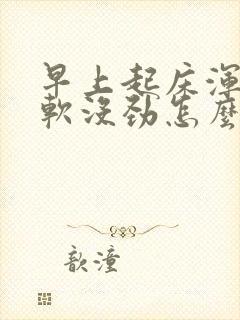 早上起床渾
軟沒勁怎麼
歆潼